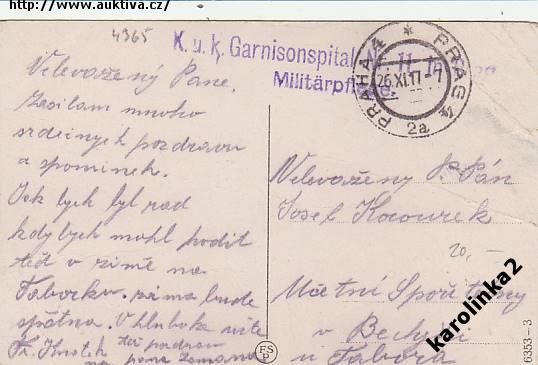 http://www.auktiva.cz/
4365
K. u. k. Garnisonspital N° 11
Militärpflege.
PRAHA 4 * PRAG 4 *
26.XI.17
2a
Velevažený Pane.
Zasilam mnoho
srdečnych pozdravu
a spominek.
Jak bych byl rad
kdybych mohl
též v zimě na
Taborku. zima bude
špatna. V hluboke
Fr.
též pozdrav
na pana Zemana
Velevažený P. Pán
Josef Kocourek
20,-
Učetní Spořitelny
v Bechyni
u Tabora
FS
6353 - 3
karolinka2